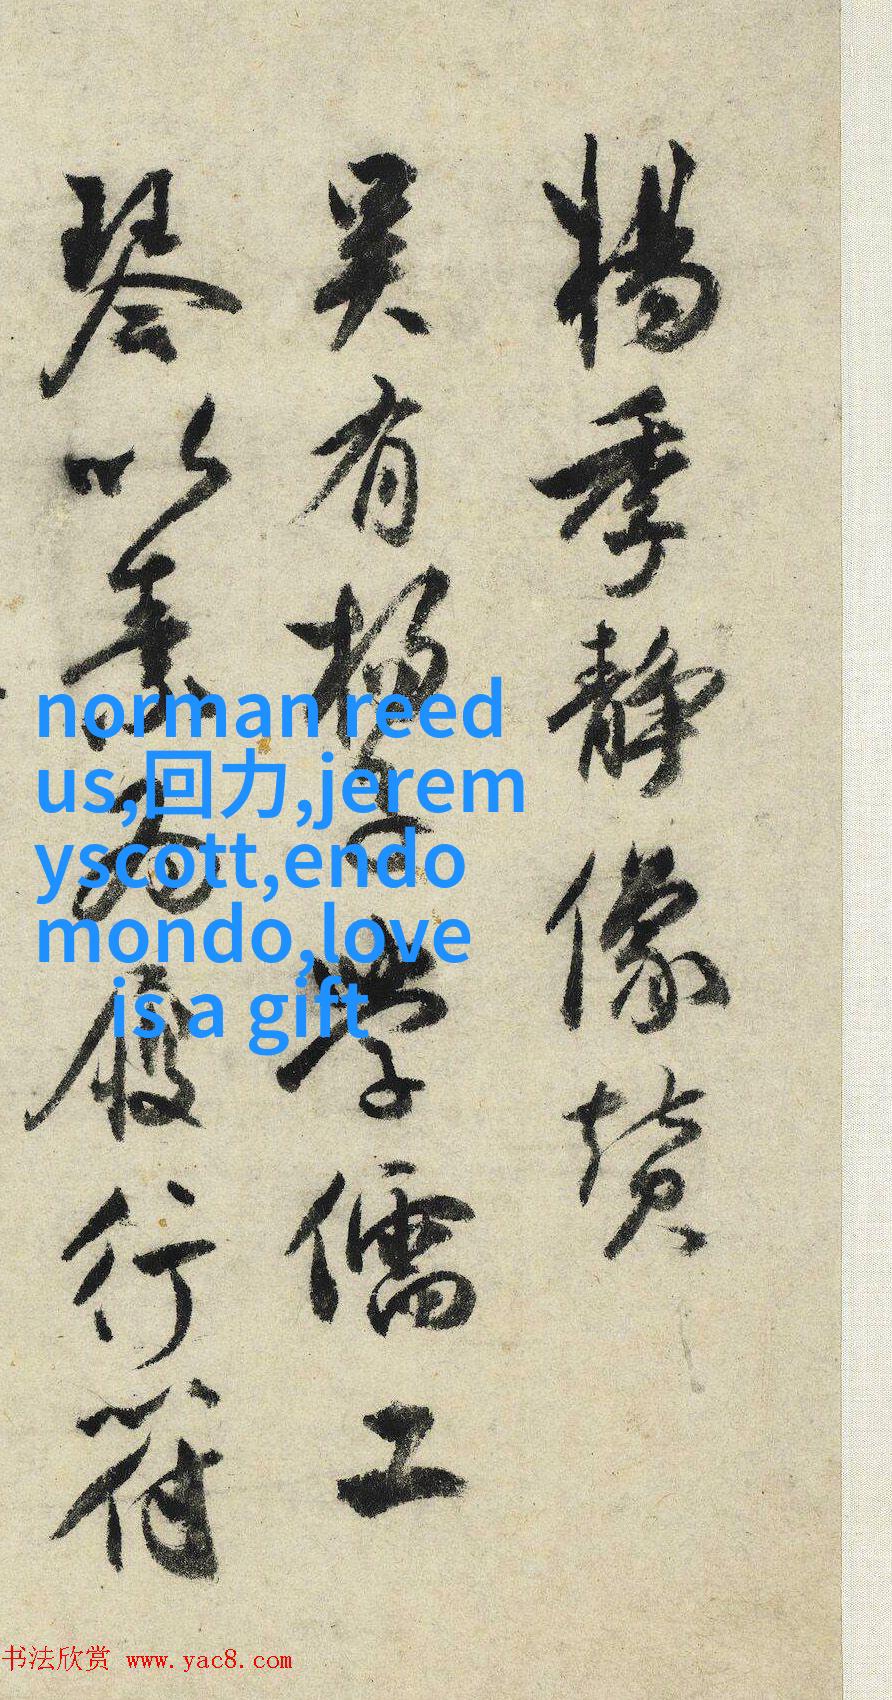 楊季靜像贊
吳有楊子學儒工
琴以素为履行符
norman reed
us,回力,jerem
yscott,endo
mondo,love
is a gift
书法欣赏 www.yac8.com